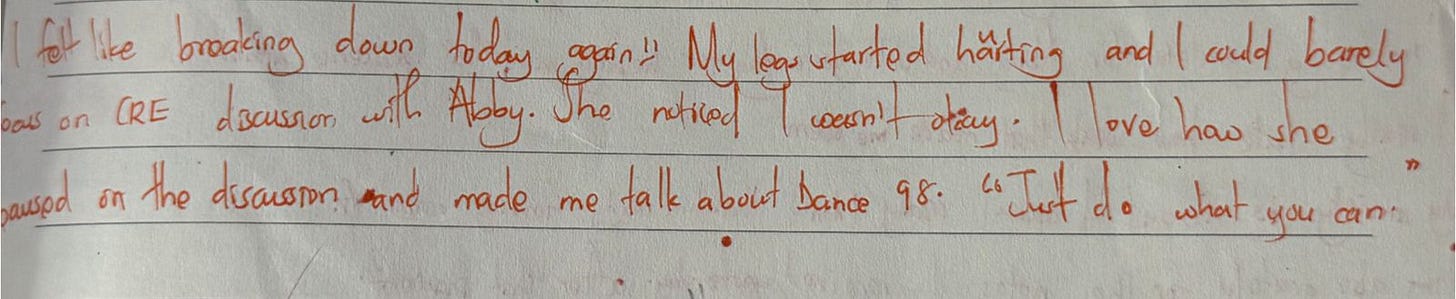 I felt like breaking down today again!! My legs started hurting and I could barely
focus on CRE discussion with Abby. She noticed I wasn't okay. I love how she
paused on the discussion and made me talk about Dance 98. "Just do what you can."